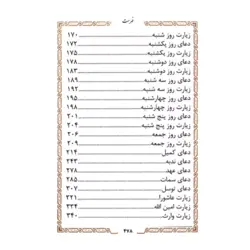 فهرست
زیارت روز شنبه ... ۱۷۰
دعای روز یکشنبه ... ۱۷۲
زیارت روز یکشنبه ... ۱۷۵
دعای روز دوشنبه ... ۱۷۸
زیارت روز دوشنبه ... ۱۸۳
دعای روز سه شنبه ... ۱۸۹
زیارت روز سه شنبه ... ۱۹۲
دعای روز چهارشنبه ... ۱۹۵
زیارت روز چهارشنبه ... ۱۹۸
دعای روز پنج شنبه ... ۲۰۱
زیارت روز پنج شنبه ... ۲۰۴
دعای روز جمعه ... ۲۰۶
زیارت روز جمعه ... ۲۰۹
دعای کمیل ... ۲۱۴
دعای ندبه ... ۲۴۳
دعای عهد ... ۲۷۸
دعای سمات ... ۲۸۵
دعای توسل ... ۳۰۷
زیارت عاشورا ... ۳۲۱
زیارت امین الله ... ۳۳۴
زیارت وارث ... ۳۴۰
۴۶۸